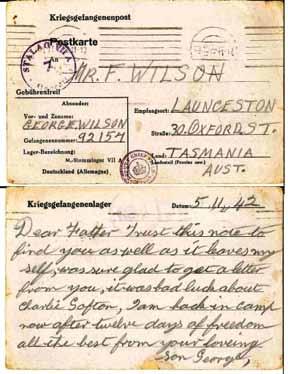 Kriegsgefangenenpost
Postkarte
STALAG VII A
An
MR. F. WILSON
Gebührenfrei!
Absender:
Vor- und Zuname:
GEORGE WILSON
Gefangenennummer: 92154
Lager-Bezeichnung:
M.-Stammlager VII A
Deutschland (Allemagne)
Empfangsort: LAUNCESTON
Straße: 30. OXFORD. ST.
Land: TASMANIA
AUST.
Kriegsgefangenenlager Datum: 5.11.42
Dear Father Trust this note to
find you as well as it leaves my
self, was sure glad to get a letter
from you, it was bad luck about
Charlie Gofton, I am back in camp
now after twelve days of freedom
all the best from your loveing
Son George,